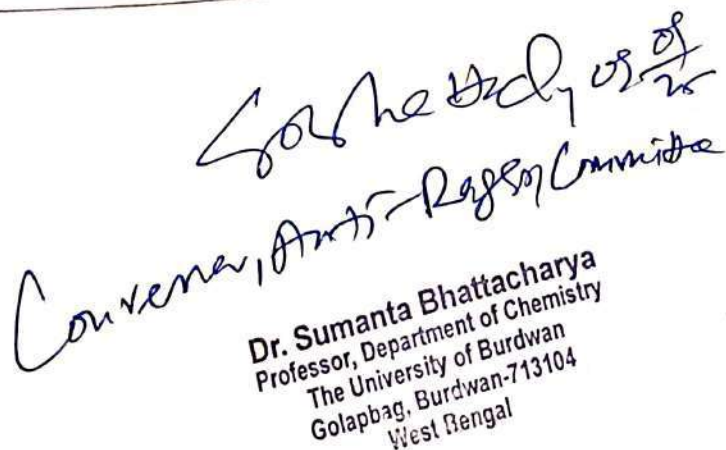 Convener, Anti-Ragging Committee
Dr. Sumanta Bhattacharya
Professor, Department of Chemistry
The University of Burdwan
Golapbag, Burdwan-713104
West Bengal